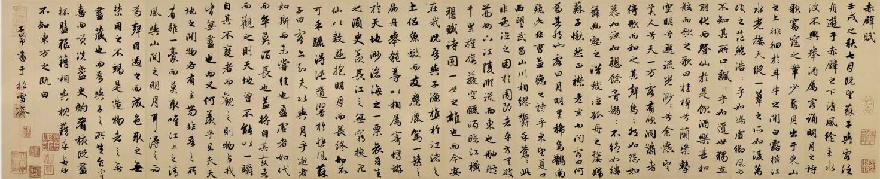 赤壁賦
壬戌之秋七月既望蘇子與客泛
舟遊于赤壁之下清風徐來水
波不興舉酒屬客誦明月之詩
歌窈窕之章少焉月出于東山
之上徘徊於斗牛之間白露橫江
水光接天縱一葦之所如凌萬
頃之茫然浩浩乎如馮虛御風而
不知其所止飄飄乎如遺世獨立
羽化而登仙於是飲酒樂甚扣
舷而歌之歌曰桂棹兮蘭槳擊
空明兮泝流光渺渺兮余懷望
美人兮天一方客有吹洞簫者
倚歌而和之其聲嗚嗚然如怨如
慕如泣如訴餘音嫋嫋不絕如縷
舞幽壑之潛蛟泣孤舟之嫠婦
蘇子愀然正襟危坐而問客曰何
為其然也客曰月明星稀烏鵲南
飛此非曹孟德之詩乎東望夏口
西望武昌山川相繆鬱乎蒼蒼此
非孟德之困於周郎者乎方其破
荊州下江陵順流而東也舳艫
千里旌旗蔽空釃酒臨江橫
槊賦詩固一世之雄也而今安
在哉況吾與子漁樵於江渚之
上侶魚蝦而友麋鹿駕一葉之
扁舟舉匏樽以相屬寄蜉蝣
於天地渺滄海之一粟哀吾生
之須臾羨長江之無窮挾飛
仙以遨遊抱明月而長終知不
可乎驟得託遺響於悲風蘇
子曰客亦知夫水與月乎逝者
如斯而未嘗往也盈虛者如代
而卒莫消長也蓋將自其變者
而觀之則天地曾不能以一瞬
自其不變者而觀之則物與我
皆無盡也而又何羨乎且夫天
地之間物各有主苟非吾之所
有雖一毫而莫取唯江上之清
風與山間之明月耳得之而
為聲目遇之而成色取之無
禁用之不竭是造物者之無
盡藏也而吾與子之所共食客
喜而笑洗盞更酌肴核既盡
杯盤狼藉相與枕藉乎舟中
不知東方之既白
子昂書于松雪齋